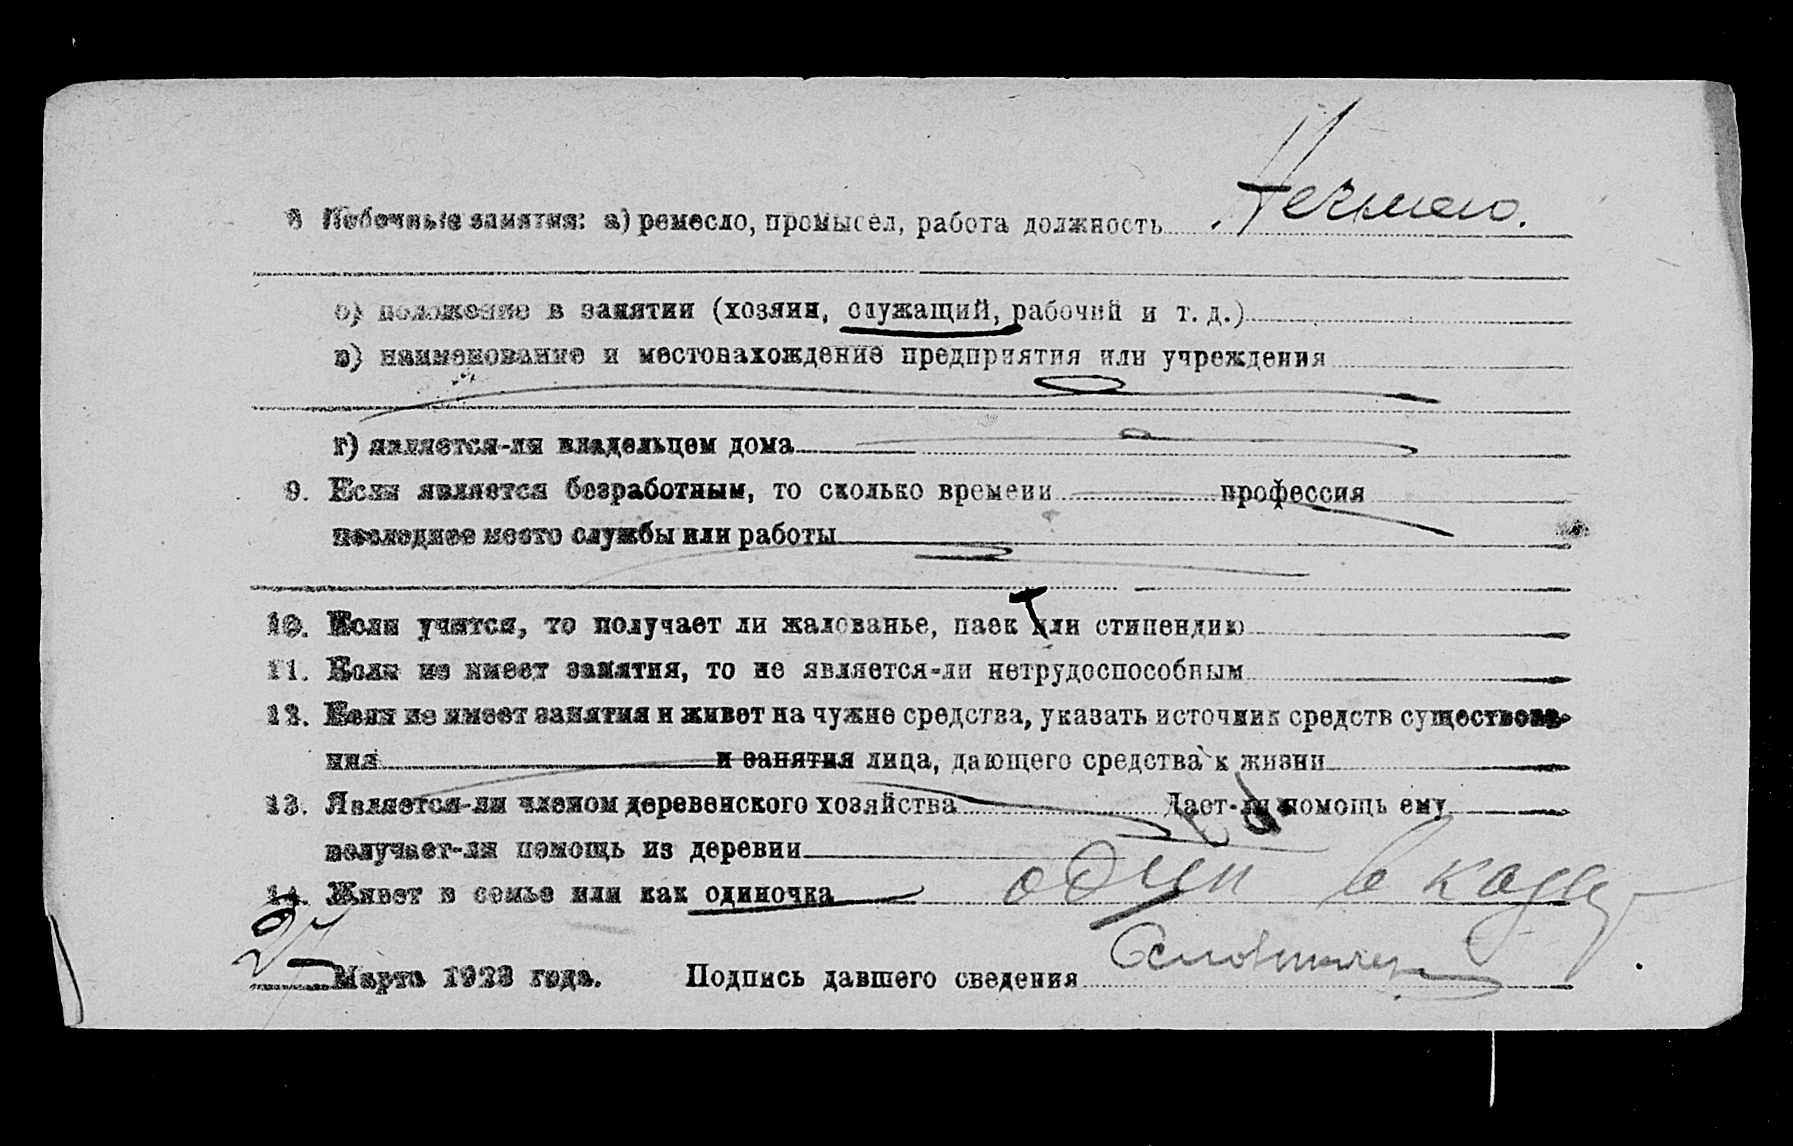 8 Побочные занятия: а) ремесло, промысел, работа должность
б) положение в занятии (хозяин, служащий, рабочий и т. д.)
в) наименование и местонахождение предприятия или учреждения
г) является-ли владельцем дома
9. Если является безработным, то сколько времени профессия
последнее место службы или работы
10. Если учится, то получает ли жалованье, паек или стипендию
11. Если не имеет занятия, то не является-ли нетрудоспособным
12. Если не имеет занятия и живет на чужие средства, указать источник средств существова-
ния и занятия лица, дающего средства к жизни
13. Является-ли членом деревенского хозяйства Дает-ли помощь ему
получает-ли помощь из деревни
14. Живет в семье или как одиночка один в
27 Марта 1923 года. Подпись давшего сведения